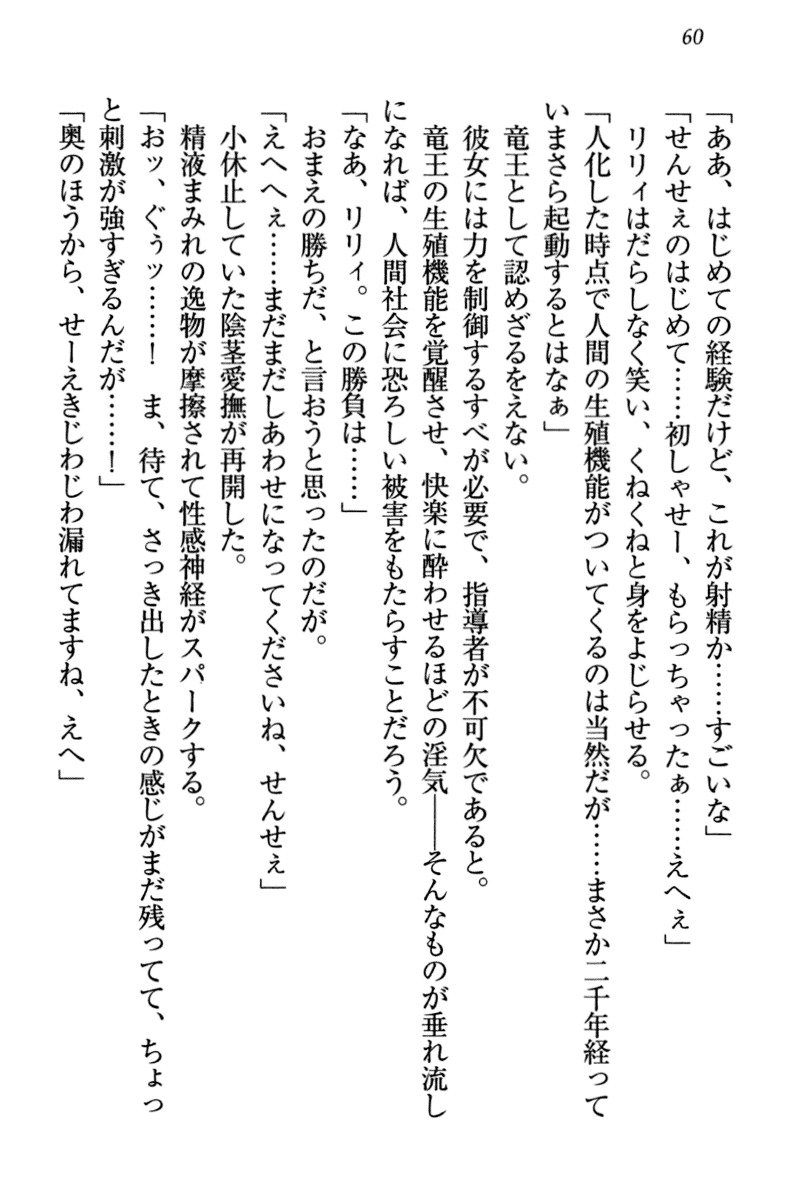 60
「ああ、はじめての経験だけど、これが射精か……すごいな」
「せんせぇのはじめて……初しゃせー、もらっちゃったぁ……えへぇ」
リリィはだらしなく笑い、くねくねと身をよじらせる。
「人化した時点で人間の生殖機能がついてくるのは当然だが……まさか二千年経って
いまさら起動するとはなぁ」
竜王として認めざるをえない。
彼女には力を制御するすべが必要で、指導者が不可欠であると。
竜王の生殖機能を覚醒させ、快楽に酔わせるほどの淫気――そんなものが垂れ流し
になれば、人間社会に恐ろしい被害をもたらすことだろう。
「なあ、リリィ。この勝負は……」
おまえの勝ちだ、と言おうと思ったのだが。
「えへへぇ……まだまだしあわせになってくださいね、せんせぇ」
小休止していた陰茎愛撫が再開した。
精液まみれの逸物が摩擦されて性感神経がスパークする。
「おッ、ぐぅッ……！　ま、待て、さっき出したときの感じがまだ残ってて、ちょっ
と刺激が強すぎるんだが……！」
「奥のほうから、せーえきじわじわ漏れてますね、えへ」